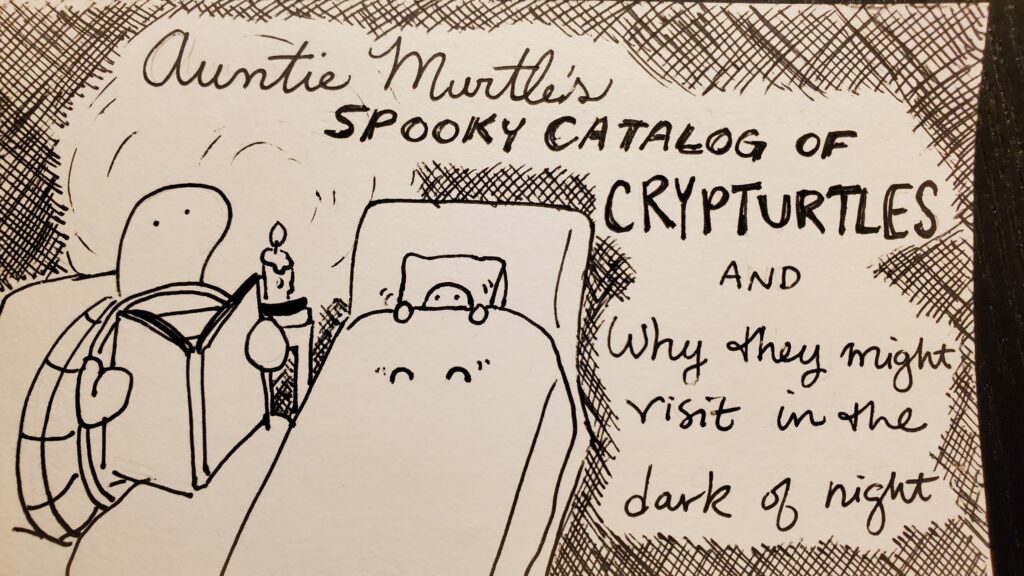 Auntie Murtle's
SPOOKY CATALOG OF
CRYPTURTLES
AND
Why they might
visit in the
dark of night